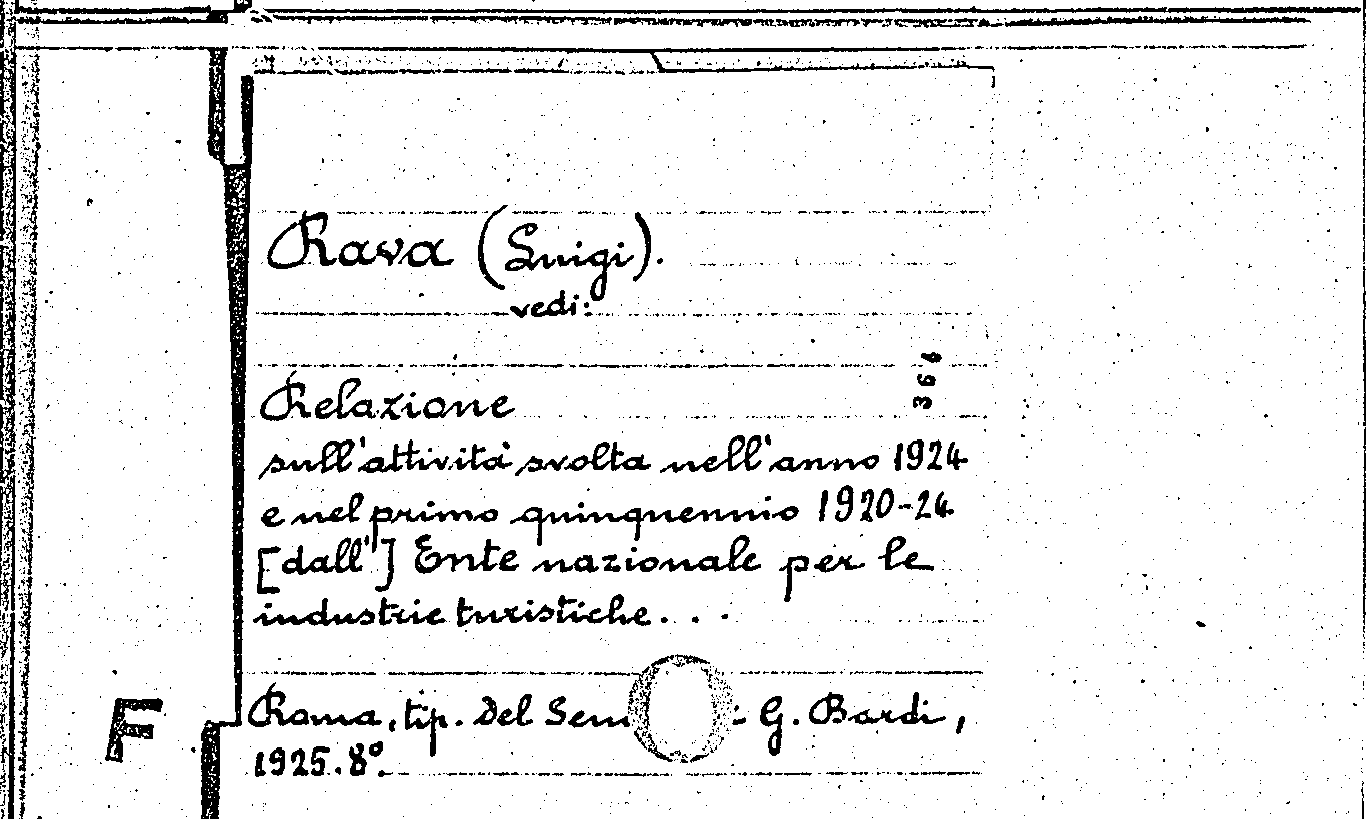 Rava (Luigi).
vedi:
364
Relazione
sull'attività svolta nell'anno 1924
e nel primo quinquennio 1920-24
[dall'] Ente nazionale per le
industrie turistiche...
Roma, tip. del G. Bardi,
1925. 8º.
F